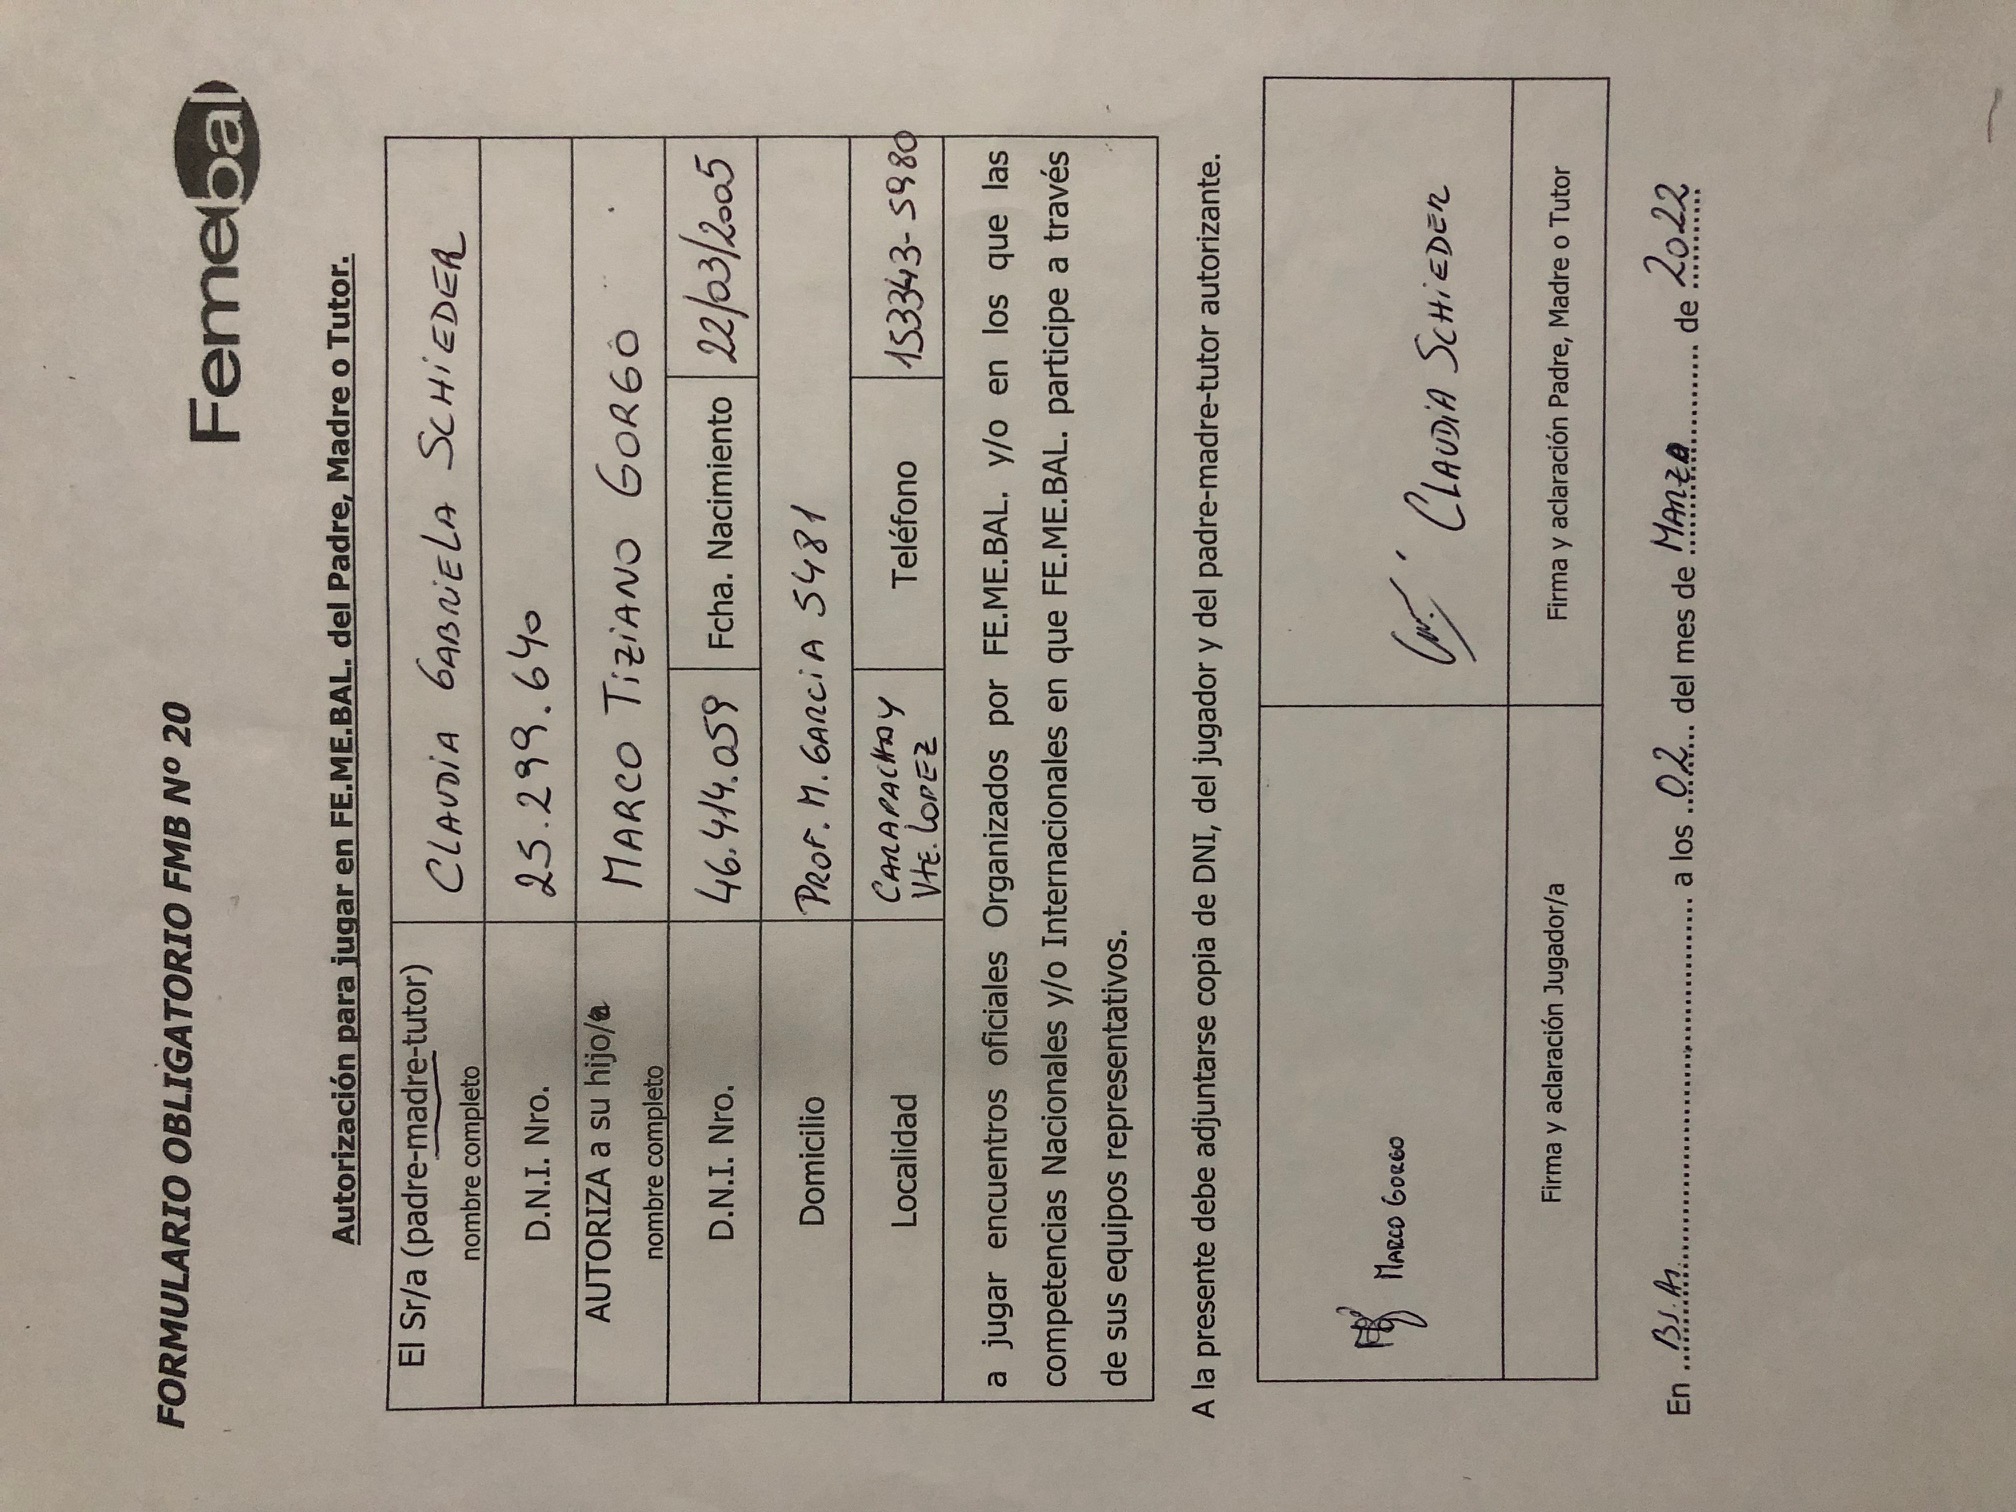 FORMULARIO OBLIGATORIO FMB Nº 20
Femebal
Autorización para jugar en FE.ME.BAL. del Padre, Madre o Tutor.
El Sr/a (padre-madre-tutor) CLAUDIA GABRIELA SCHIEDER
nombre completo
D.N.I. Nro. 25.299.640
AUTORIZA a su hijo/a MARCO TIZIANO GORGO
nombre completo
D.N.I. Nro. 46.414.059 Fcha. Nacimiento 22/03/2005
Domicilio PROF. M. GARCIA 5481
Localidad CARAPACHAY Teléfono 1533343-5980
Vte. LOPEZ
a jugar encuentros oficiales Organizados por FE.ME.BAL. y/o en los que las
competencias Nacionales y/o Internacionales en que FE.ME.BAL. participe a través
de sus equipos representativos.
A la presente debe adjuntarse copia de DNI, del jugador y del padre-madre-tutor autorizante.
MARCO GORGO CLAUDIA SCHIEDER
Firma y aclaración Jugador/a Firma y aclaración Padre, Madre o Tutor
En Bs.As. a los 02 del mes de MARZO de 2022